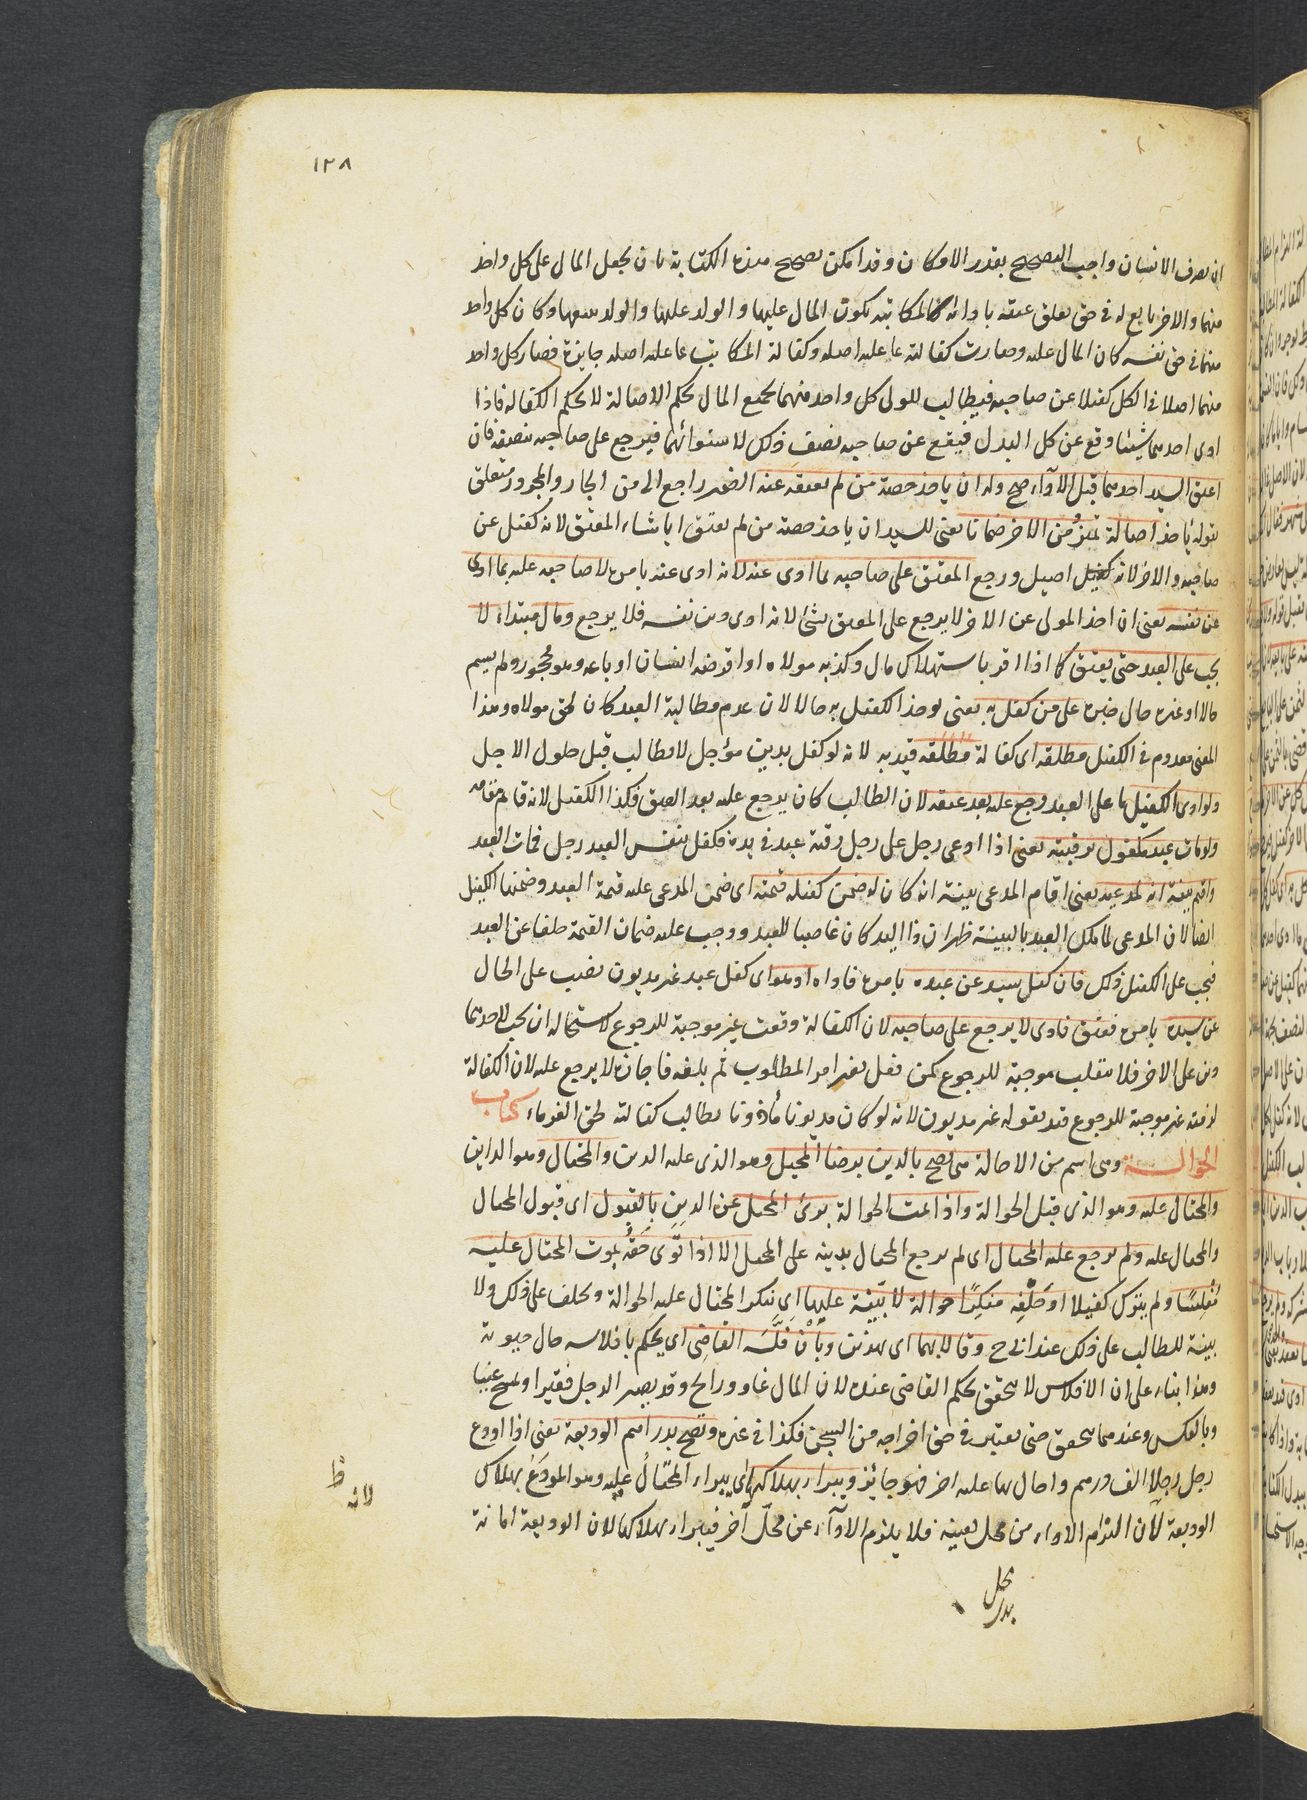 ١٢٨
ان تصرف الانسان واجب التصحيح بقدر الامكان وقد امكن تصحيح هذه الكتابة بان يجعل المال على كل واحد
منهما والاخر تابع له في حق تعلق عتقه بادائه كالمكاتبة يكون المال عليها والولد عليها والولد معها وكان كل واحد
منهما في حق نفسه كان المال عليه وصارت كفالته بما عليه اصله وكفالة المكاتب بما عليه اصله جايزة فصار كل واحد
منهما اصلا في الكل كفيلا عن صاحبه فيطالب المولى كل واحد منهما بجميع المال بحكم الاصالة لا بحكم الكفالة فاذا
ادى احدهما شيئا وقع عن كل البدل فيقع عن صاحبه نصف ذلك لاستوائهما فيرجع على صاحبه بنصفه فان
اعتق السيد احدهما قبل الاداء صح وله ان ياخذ حصة من لم يعتقه عنه الضمير راجع الى من الجار والمجرور متعلق
بقوله ياخذ اصالة من الاخر ضمانا يعني للسيد ان ياخذ حصة من لم يعتق ايا شاء المعتق لانه كفيل عن
صاحبه والاخر لانه كفيل اصيل ورجع المعتق على صاحبه بما ادى عنه لانه ادى عنه بامره لا صاحبه عليه بما ادى
عن نفسه يعني ان اخذ المولى عن الاخر لا يرجع على المعتق بشئ لانه ادى دين نفسه فلا يرجع ومال مبتداء لا
يجب على العبد حتى يعتق كما اذا اقر باستهلاك مال وكذبه مولاه او اقرضه انسان او باعه وهو محجور ولم يسم
حالا او غيره حال خبره على من كفل به يعني يوخذ الكفيل به حالا لان عدم مطالبة العبد كان لحق مولاه وهذا
المعنى معدوم في الكفيل مطلقه اى كفالة مطلقه قيد به لانه لو كفل بدين مؤجل لا يطالب قبل حلول الاجل
ولو ادى الكفيل ما على العبد رجع عليه بعد عتقه لان الطالب كان يرجع عليه بعد العتق فكذا الكفيل لانه قائم مقامه
ولو مات عبد مكفول برقبته يعني اذا ادعى رجل على رجل رقبة عبد في يده فكفل بنفس العبد رجل فمات العبد
واقيم بينة انه لمدعيه يعني اقام المدعي بينة انه كان له ضمن كفيله قيمته اى ضمن المدعى عليه قيمة العبد وضمنها الكفيل
ايضا لان المدعى لما ملك العبد بالبينة ظهر ان ذا اليد كان غاصبا للعبد ووجب عليه ضمان القيمة خلفا عن العبد
فيجب على الكفيل ذلك فان كفل سيد عن عبده بامره فاداه او هو اى كفل عبد غير مديون نصب على الحال
عن سيده بامره فعتق فادى لا يرجع على صاحبه لان الكفالة وقعت غير موجبة للرجوع لاستحالة ان يجب لاحدهما
دين على الاخر فلا تنقلب موجبة للرجوع كمن كفل بغير امر المطلوب ثم بلغه فاجازه لا يرجع عليه لان الكفالة
لزمته غير موجبة للرجوع قيد بقوله غير مديون لانه لو كان مديونا ماذونا يطالب كفالته لحق الغرماء كتاب
الحوالة وهى اسم من الاحالة هى تصح بالدين برضا المحيل وهو الذى عليه الدين والمحتال وهو الداين
والمحتال عليه وهو الذى قبل الحوالة واذا تمت الحوالة برئ المحيل عن الدين بالقبول اى قبول المحتال
والمحتال عليه ولم يرجع عليه المحتال اى لم يرجع المحتال بدينه على المحيل الا اذا توى حقه بموت المحتال عليه
مفلسا ولم يترك كفيلا او حلفه منكرا حوالة لا بينة عليها اى ينكر المحتال عليه الحوالة وحلف على ذلك ولا
بينة للطالب على ذلك عند ابي ح وقالا بهما اى بهذين وبان فلسه القاضى اى يحكم بافلاسه حال حيوته
وهذا بناء على ان الافلاس لا يتحقق بحكم القاضى عنده لان المال غاد ورايح وقد يصير الرجل فقيرا ويصبح غنيا
وبالعكس وعندهما يتحقق حتى يعتبر في حق اخراجه من السجن فكذا في غيره وتصح بدراهم الوديعة يعني اذا اودع
رجل رجلا الف درهم واحال بها عليه اخر فهو جائز ويبراء بهلاكها اى يبراء المحتال عليه وهو المودع بهلاك
الوديعة لان التزام الاداء من محل بعينه فلا يلزم الاداء عن محل آخر فيبراء بهلاكها لان الوديعة امانة
لانه ظ